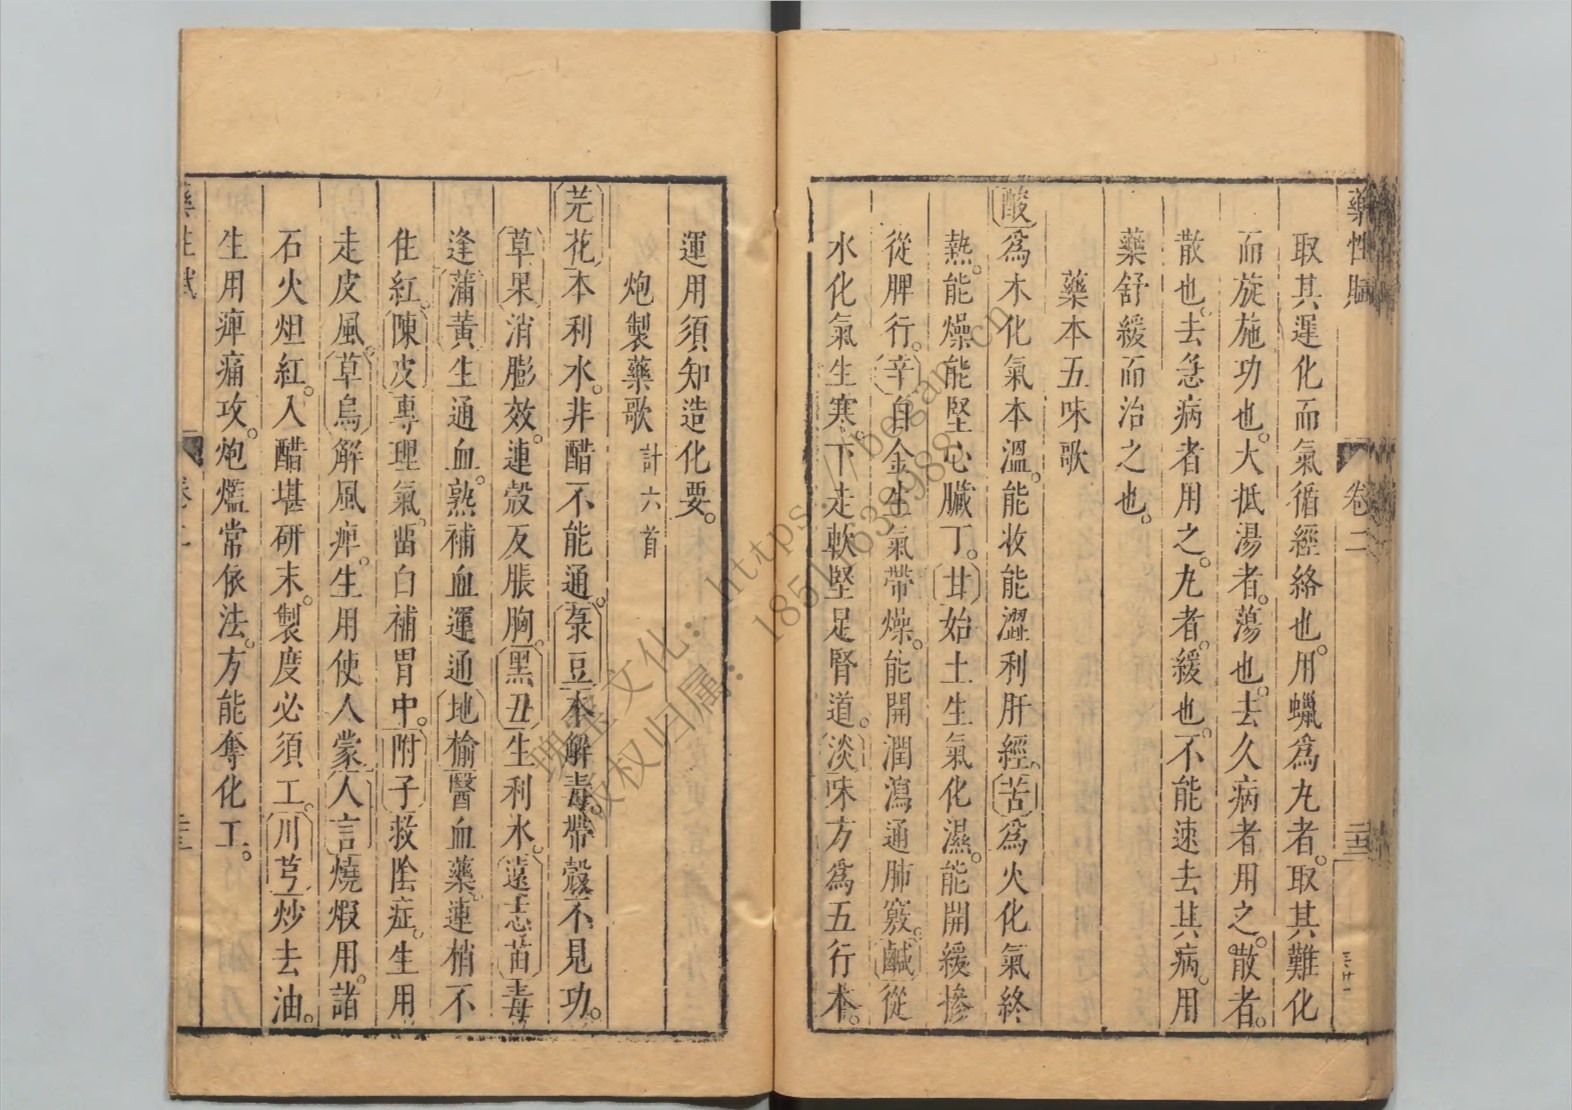 藥性賦 卷二 二十三
取其遲化而氣循經絡也。用蠟爲丸者。取其難化
而旋施功也。大抵湯者。蕩也。去久病者用之。散者。
散也。去急病者用之。丸者。緩也。不能速去其病。用
藥舒緩而治之也。
藥本五味歌
酸爲木化氣本溫。能收能澀利肝經。苦爲火化氣終
熱。能燥能堅心臟丁。甘始土生氣化濕。能開緩摻
從脾行。辛自金生氣帶燥。能開潤瀉通肺竅。鹹從
水化氣生寒。下走軟堅足腎道。淡味方爲五行本。
運用須知造化要。
炮製藥歌 計六首
芫花本利水。非醋不能通。菉豆本解毒。帶殼不見功。
草果消膨效。連殼反脹胸。黑丑生利水。遠志苗毒
逢。蒲黃生通血。熟補血運通。地榆醫血藥。連梢不
住紅。陳皮專理氣。畱白補胃中。附子救陰症。生用
走皮風。草烏解風痺。生用使人蒙。人言燒煆用。諸
石火炟紅。入醋堪研末。製度必須工。川芎炒去油。
生用痺痛攻。炮爁常依法。方能奪化工。
藥性賦 卷二 二十三
瑰金文化：https://bogan.cn
版权归属：